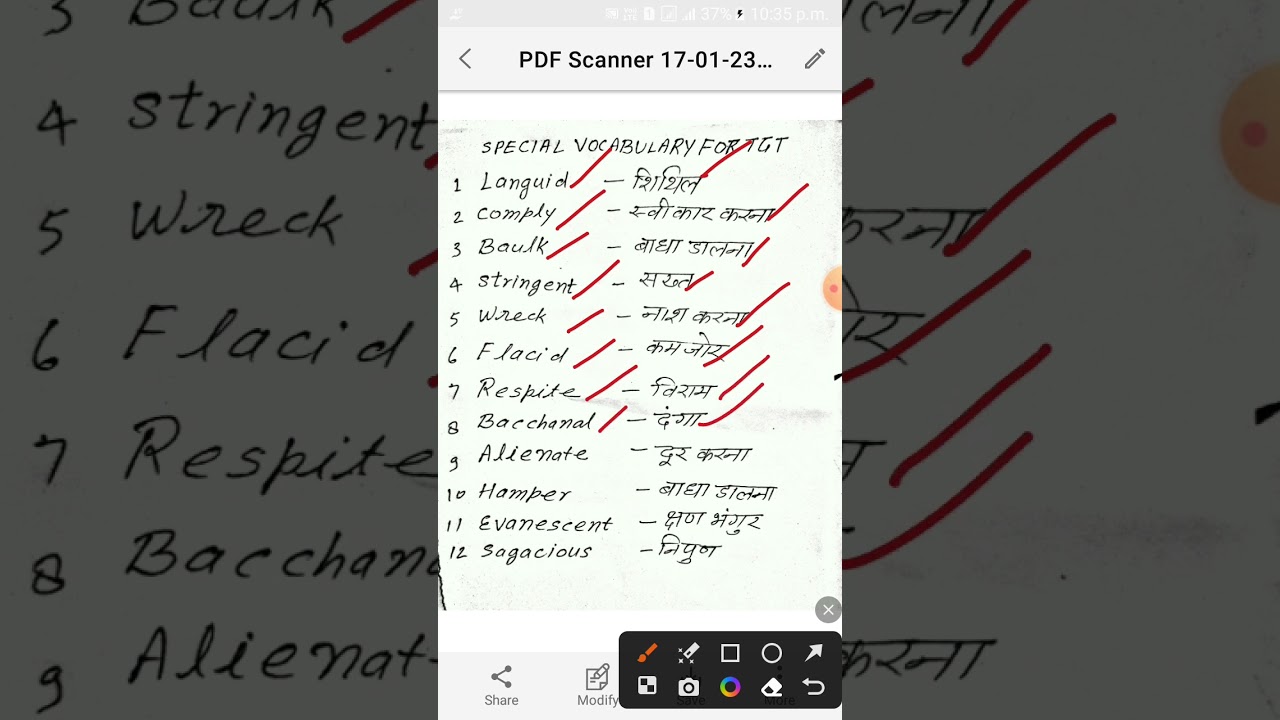 37% 10:35 p.m.
PDF Scanner 17-01-23...
SPECIAL VOCABULARY FOR TGT
1 Languid - शिथिल
2 Comply - स्वीकार करना
3 Baulk - बाधा डालना
4 Stringent - सख्त
5 Wreck - नाश करना
6 Flacid - कमजोर
7 Respite - विराम
8 Bacchanal - दंगा
9 Alienate - दूर करना
10 Hamper - बाधा डालना
11 Evanescent - क्षण भंगुर
12 Sagacious - निपुण
Share Modify Save More